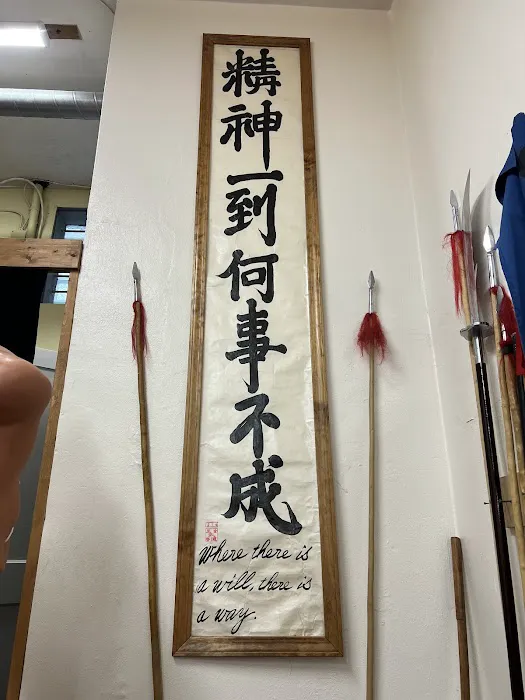 精神一到何事不成
Where there is
a will, there is
a way.